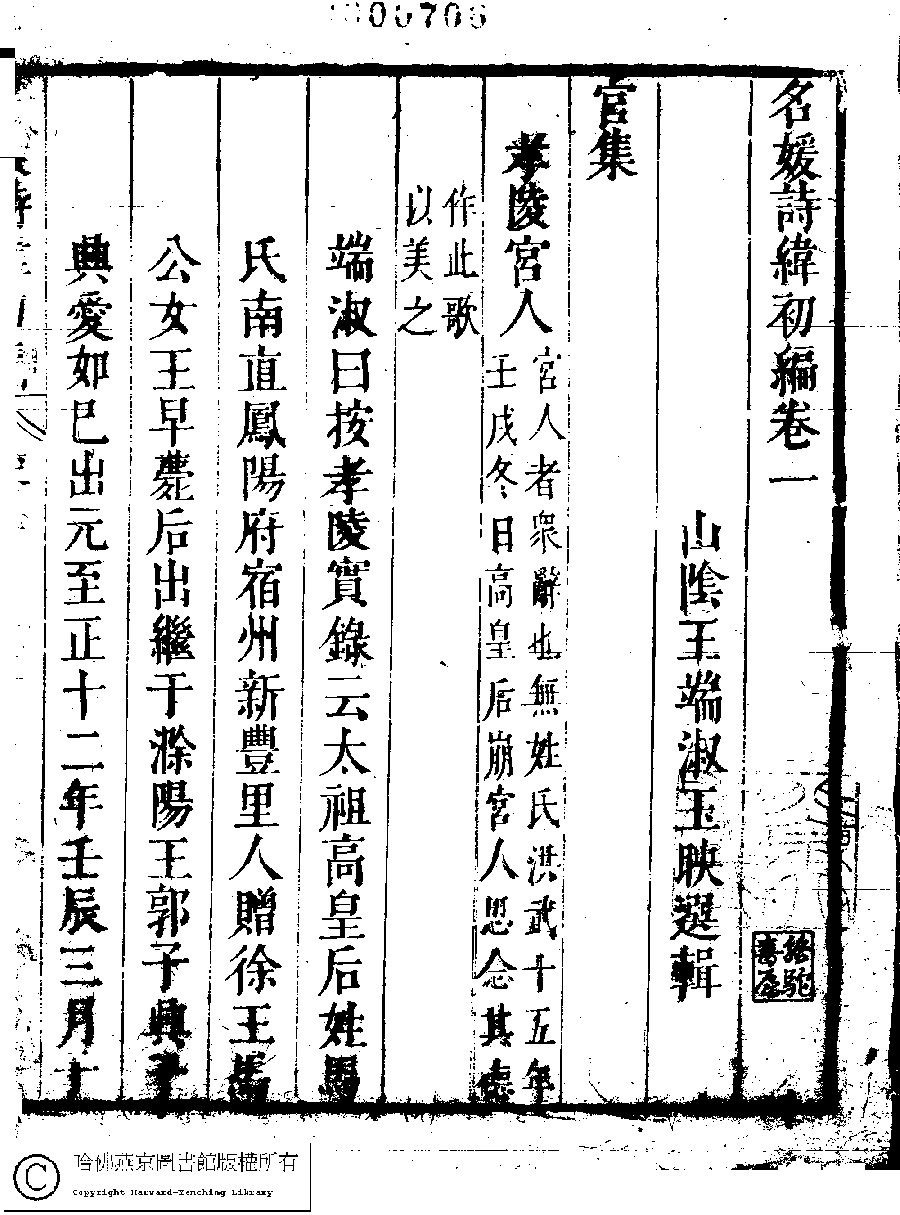 名媛詩緯初編卷一
山陰王端淑玉映選輯
宮集
孝陵宮人
宮人者眾辭也無姓氏洪武十五年
壬戌冬日高皇后崩宮人思念其德
作此歌
以美之
端淑曰按孝陵實錄云太祖高皇后姓馬
氏南直鳳陽府宿州新豐里人贈徐王馬
公女王早薨后出繼于滁陽王郭子興子
興愛如已出元至正十二年壬辰三月十
哈佛燕京圖書館版權所有
Copyright Harvard-Yenching Library